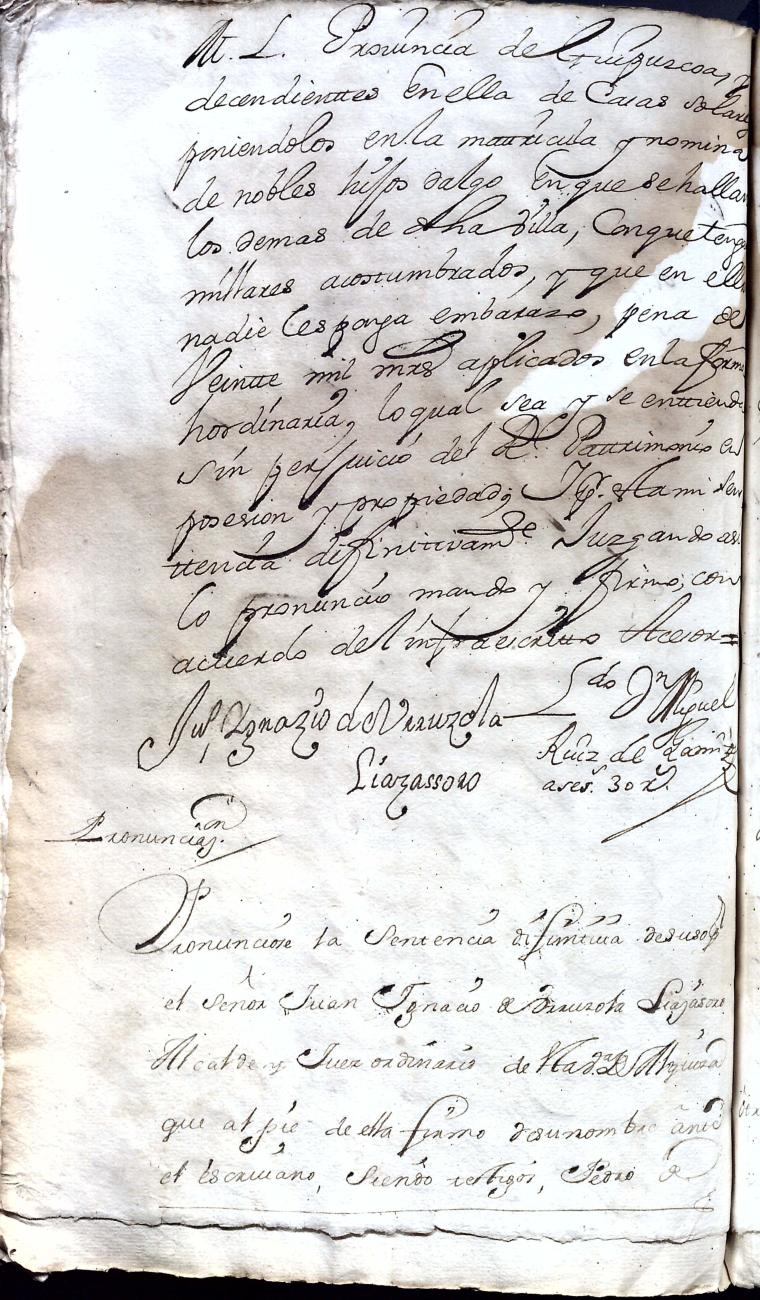 M. L. Prouincia de Guipuscoa, y
decendienttes en ella de Casas solares
poniendolos en la mattricula y nomina
de nobles hijos dalgo en que se hallan
los demas de dha Villa, Con que tengan
millares acostumbrados, y que en ello
nadie les ponga embarazo, pena de
Veintte mil mrs aplicados en la forma
hordinaria, lo qual sea y se enttiende
sin perjuicio del Rl. Pattrimonio en
posesion y propiedad; Y pr. esta mi sen
ttencia difinitivamte. Juzgando asi
lo pronuncio mando y firmo, con
acuerdo del infraescritto Acesor=
Jun. Ygnazio de Yruzola Ldo Dn Miguel
Liazassoro Ruiz de
ases.
Pronunciaon.
Pronunciose la Sentencia difinitiua desuso pr
el señor Juan Ygnacio de Yruzota Liazasoro
Alcalde y Juez ordinario de
que al pie de ella firmo de su nombre ante mi
el escriuano, siendo testigos, Pedro de